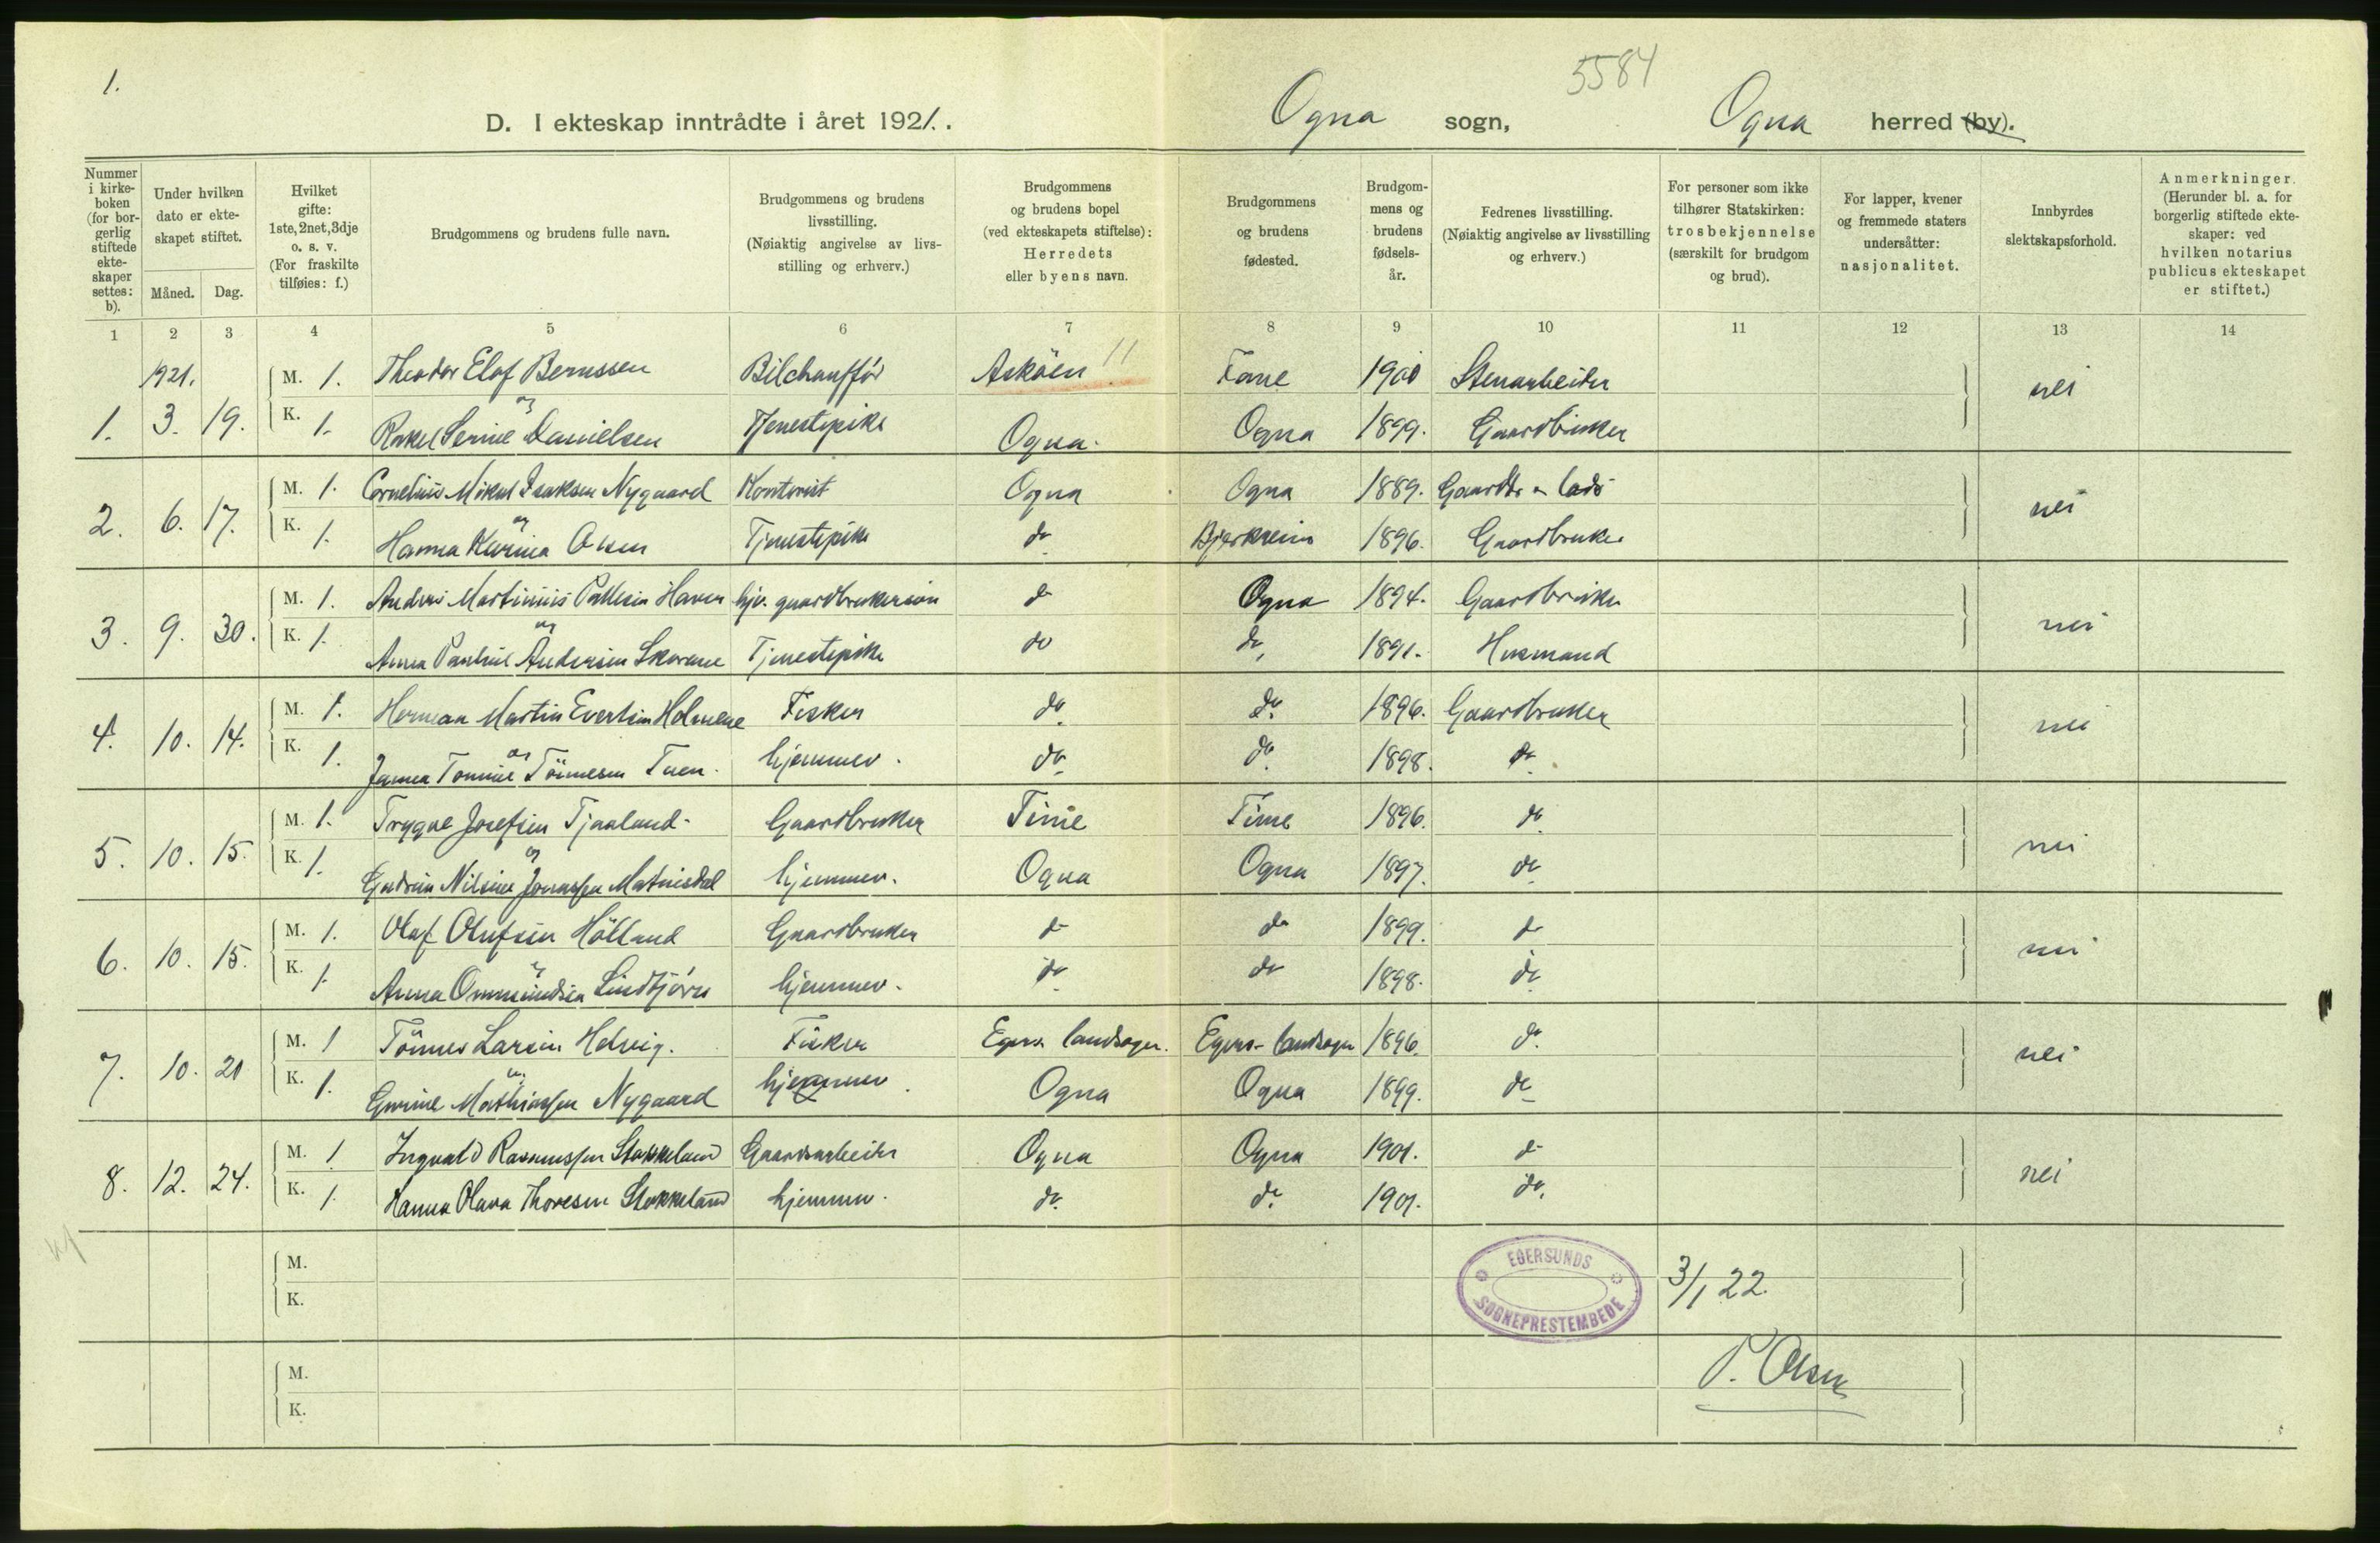 1.
5584
D. I ekteskap inntrådte i året 1921. . Ogna sogn, Ogna herred (by).
Nummer i kirkeboken (for borgerlig stiftede ekteskaper settes: b).
Under hvilken dato er ekteskapet stiftet.
Måned. Dag.
Hvilket gifte: 1ste, 2net, 3dje o. s. v. (For fraskilte tilføies: f.)
Brudgommens og brudens fulle navn.
Brudgommens og brudens livsstilling. (Nøiaktig angivelse av livsstilling og erhverv.)
Brudgommens og brudens bopel (ved ekteskapets stiftelse): Herredets eller byens navn.
Brudgommens og brudens fødested.
Brudgommens og brudens fødselsår.
Fedrenes livsstilling. (Nøiaktig angivelse av livsstilling og erhverv.)
For personer som ikke tilhører Statskirken: trosbekjennelse (særskilt for brudgom og brud).
For lapper, kvener og fremmede staters undersåtter: nasjonalitet.
Innbyrdes slektskapsforhold.
Anmerkninger. (Herunder bl. a. for borgerlig stiftede ekteskaper: ved hvilken notarius publicus ekteskapet er stiftet.)
1 2 3 4 5 6 7 8 9 10 11 12 13 14
1921. M. 1. Theodor Elof Bernssen Bilchaufför Asköen 11 Fane 1900 Stenarbeider nei
1. 3. 19. K. 1. og Rakel Serine Danielsen Tjenestepike Ogna. Ogna 1899. Gaardbruker
M. 1. Cornelius Mikal Isaksen Nygaard Kontorist Ogna Ogna 1889. Gaardbr nei
2. 6. 17. K. 1. og Hanna Karina Olsen Tjenestepike do Bjerkreim 1896. Gaardbruker
M. 1. Anders Martinius Pallesen Haver hjv. gaardbrukersön do Ogna 1894. Gaardbruker nei
3. 9. 30. K. 1. og Anna Pauline Andersen Skorane Tjenestepike do do, 1891. Husmand
M. 1. Herman Martin Evertsen Holmene Fisker do. do. 1896. Gaardbruker nei
4. 10. 14. K. 1. og Janna Tomine Tönnesen Tuen. hjemmev. do. do. 1898. do
M. 1. Trygve Josefsen Tjaaland. Gaardbruker Time Time 1896. do. nei
5. 10. 15. K. 1. og Gudrun Nilsine Jonassen Matnisdal hjemmev. Ogna Ogna 1897. do
M. 1. Olaf Olufsen Hölland Gaardbruker do do 1899. do nei
6. 10. 15. K. 1. og Anna Ommundsen Lindtjörn hjemmev. do. do 1898. do.
M. 1 Tönnes Larsen Helvig. Fisker Egers. landsogn. Egers. landsogn 1896. do. nei
7. 10. 20 K. 1. og Gurine Mathiassen Nygaard hjemmev. Ogna Ogna 1899. do
M. 1 Ingvald Rasmussen Stokkeland Gaardsarbeider Ogna Ogna 1901. do nei
8. 12. 24. K. 1. Hanna Olava Thoresen Stokkeland hjemmev. do. do. 1901. do.
M.
K.
EGERSUNDS SOGNEPRESTEMBEDE 3/1 22.
P. Olsen
M.
K.